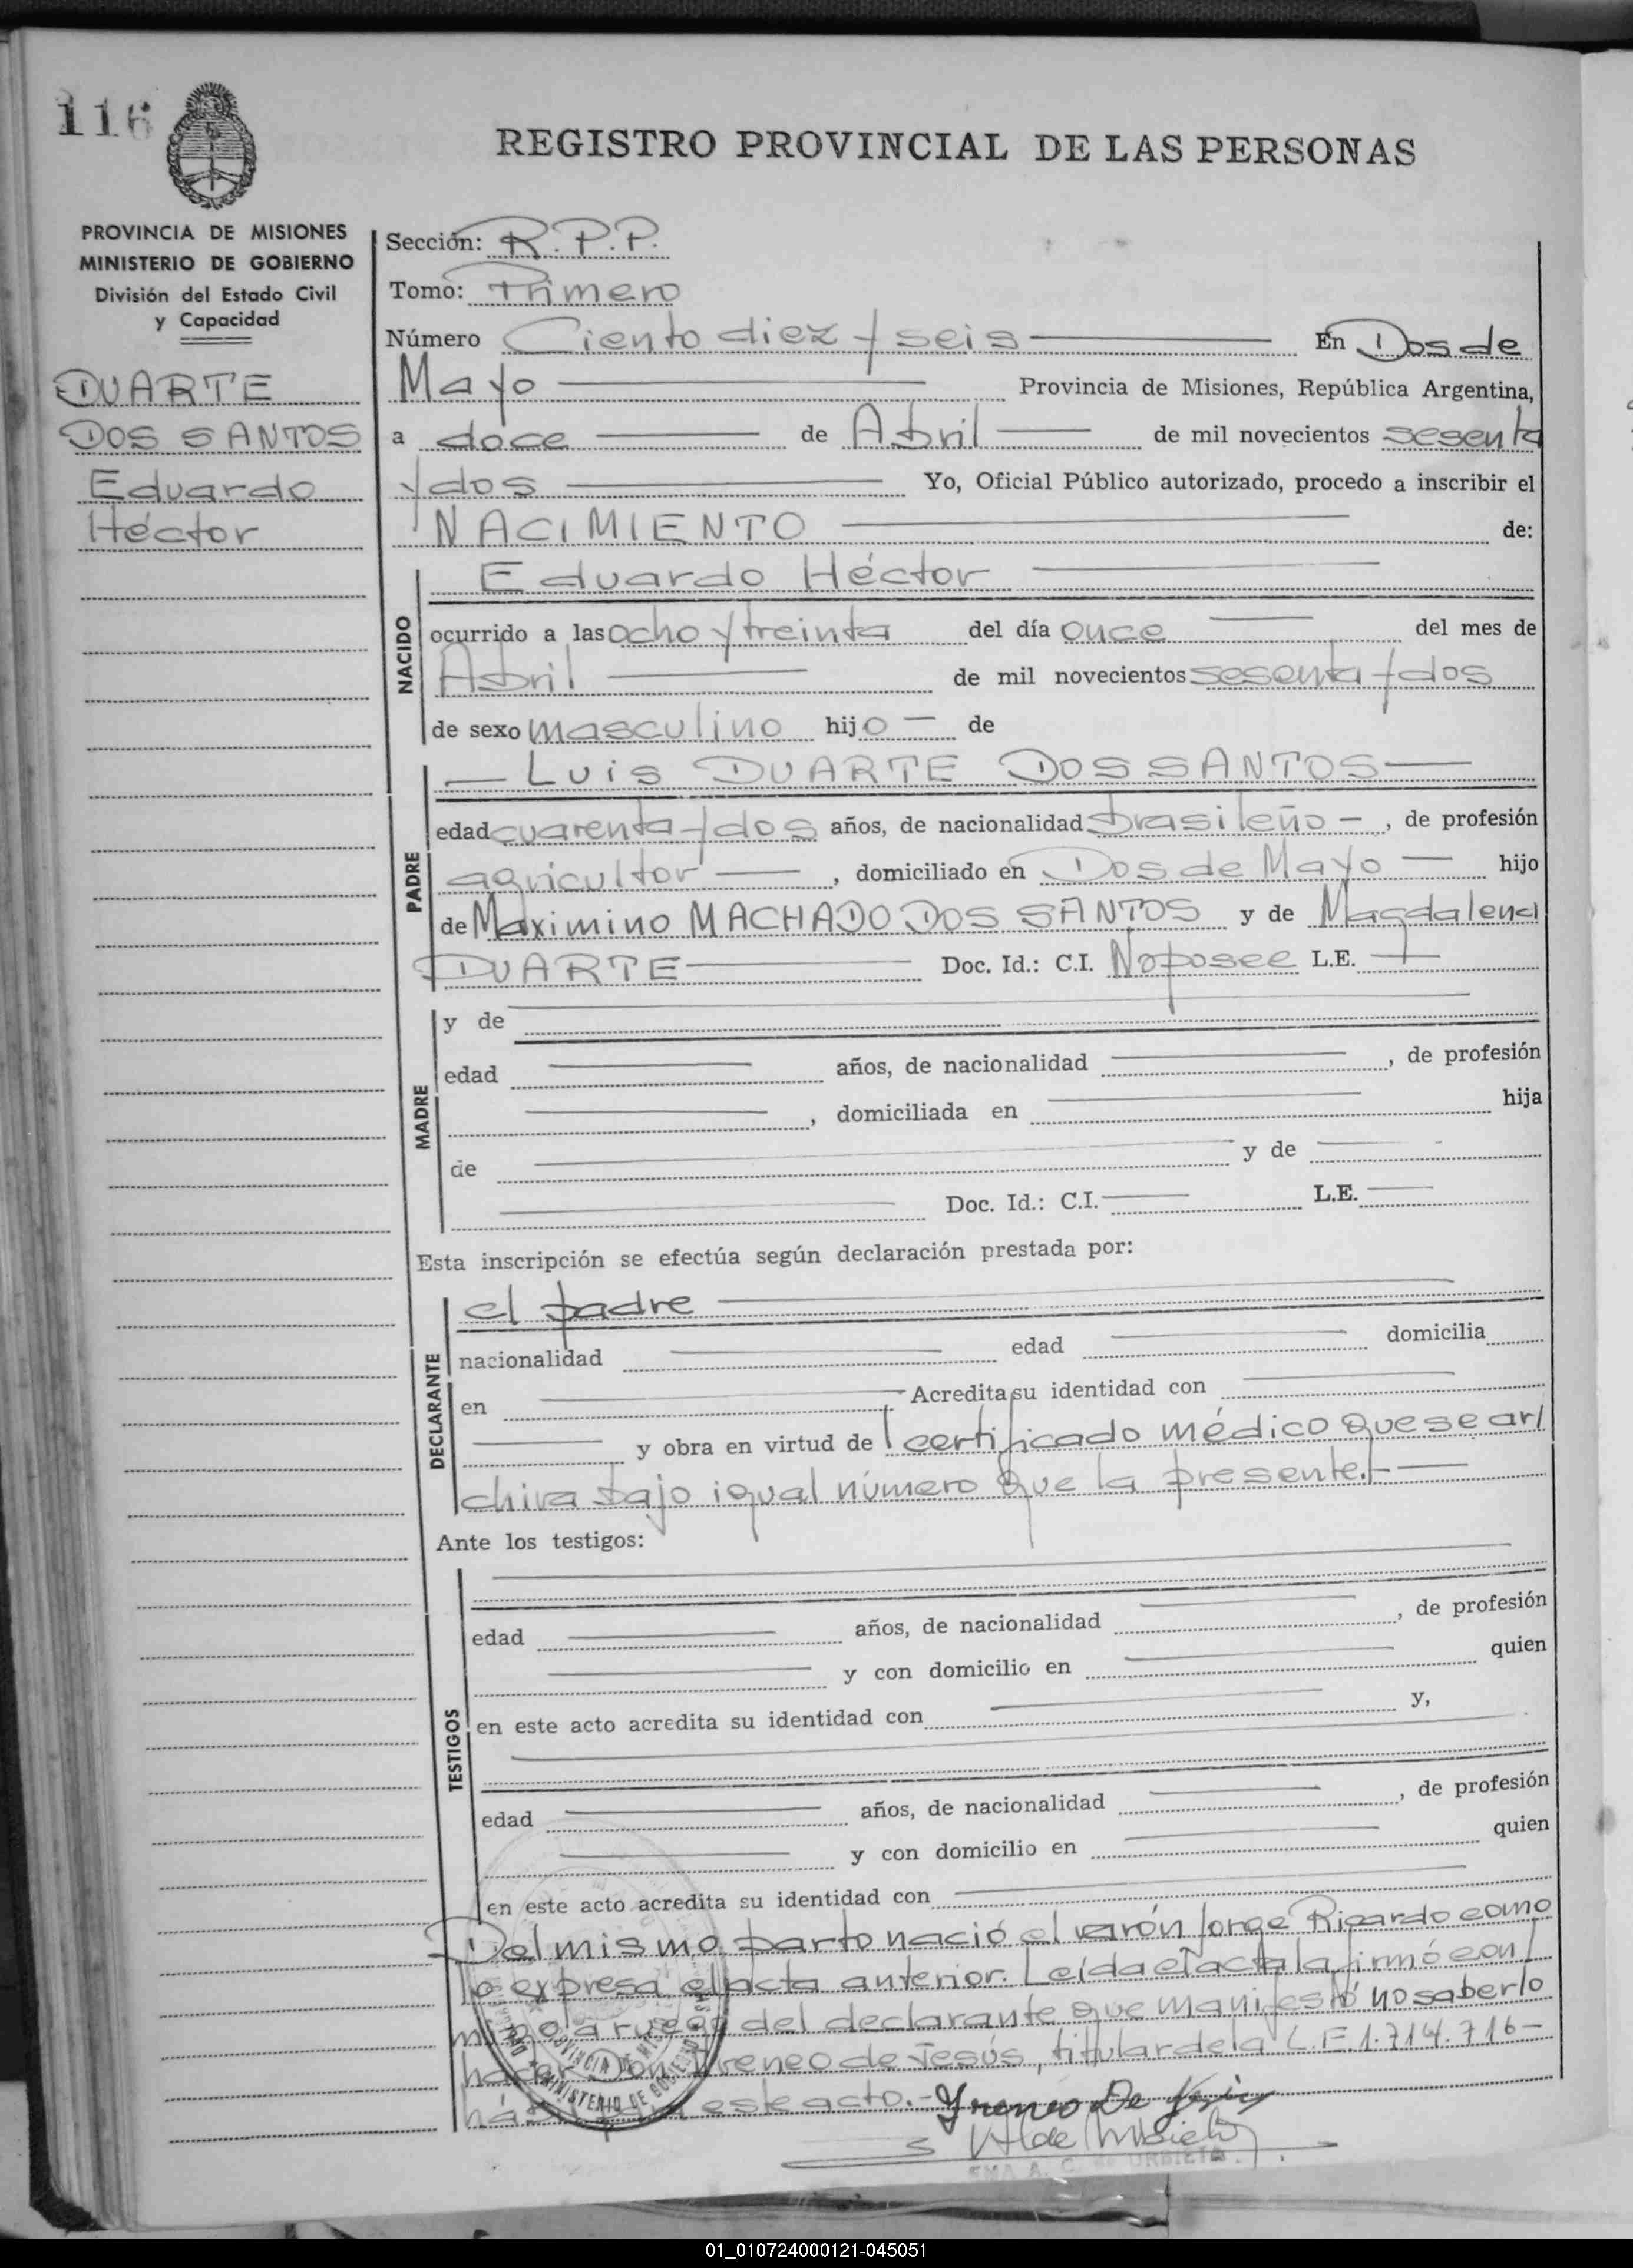 116
REGISTRO PROVINCIAL DE LAS PERSONAS
PROVINCIA DE MISIONES
MINISTERIO DE GOBIERNO
División del Estado Civil
y Capacidad
DUARTE
DOS SANTOS
Eduardo
Héctor
Sección: R.P.P.
Tomo: Primero
Número Ciento diez y seis En Dos de
Mayo Provincia de Misiones, República Argentina,
a doce de Abril de mil novecientos sesenta
y dos Yo, Oficial Público autorizado, procedo a inscribir el
NACIMIENTO de:
NACIDO
Eduardo Héctor
ocurrido a las ocho y treinta del día once del mes de
Abril de mil novecientos sesenta y dos
de sexo masculino hijo de
PADRE
Luis DUARTE DOS SANTOS
edad cuarenta y dos años, de nacionalidad brasileño, de profesión
agricultor, domiciliado en Dos de Mayo hijo
de Maximino MACHADO DOS SANTOS y de Magdalena
DUARTE Doc. Id.: C.I. No posee L.E.
MADRE
y de
edad años, de nacionalidad , de profesión
, domiciliada en hija
de y de
Doc. Id.: C.I. L.E.
Esta inscripción se efectúa según declaración prestada por:
DECLARANTE
el padre
nacionalidad edad domicilia
en Acredita su identidad con
y obra en virtud del certificado médico que se ar/
chiva bajo igual número que la presente.-
Ante los testigos:
TESTIGOS
edad años, de nacionalidad , de profesión
y con domicilio en quien
en este acto acredita su identidad con y,
edad años, de nacionalidad , de profesión
y con domicilio en quien
en este acto acredita su identidad con
Del mismo parto nació el varón Jorge Ricardo como
lo expresa el acta anterior. Leída el acta la firmó con/
migo a ruego del declarante que manifestó no saberlo
hacer Don Ireneo de Jesús, titular de la L.E. 1.714.716-
este acto.- Ireneo De Jesús
MINISTERIO DE GOBIERNO
01_010724000121-045051